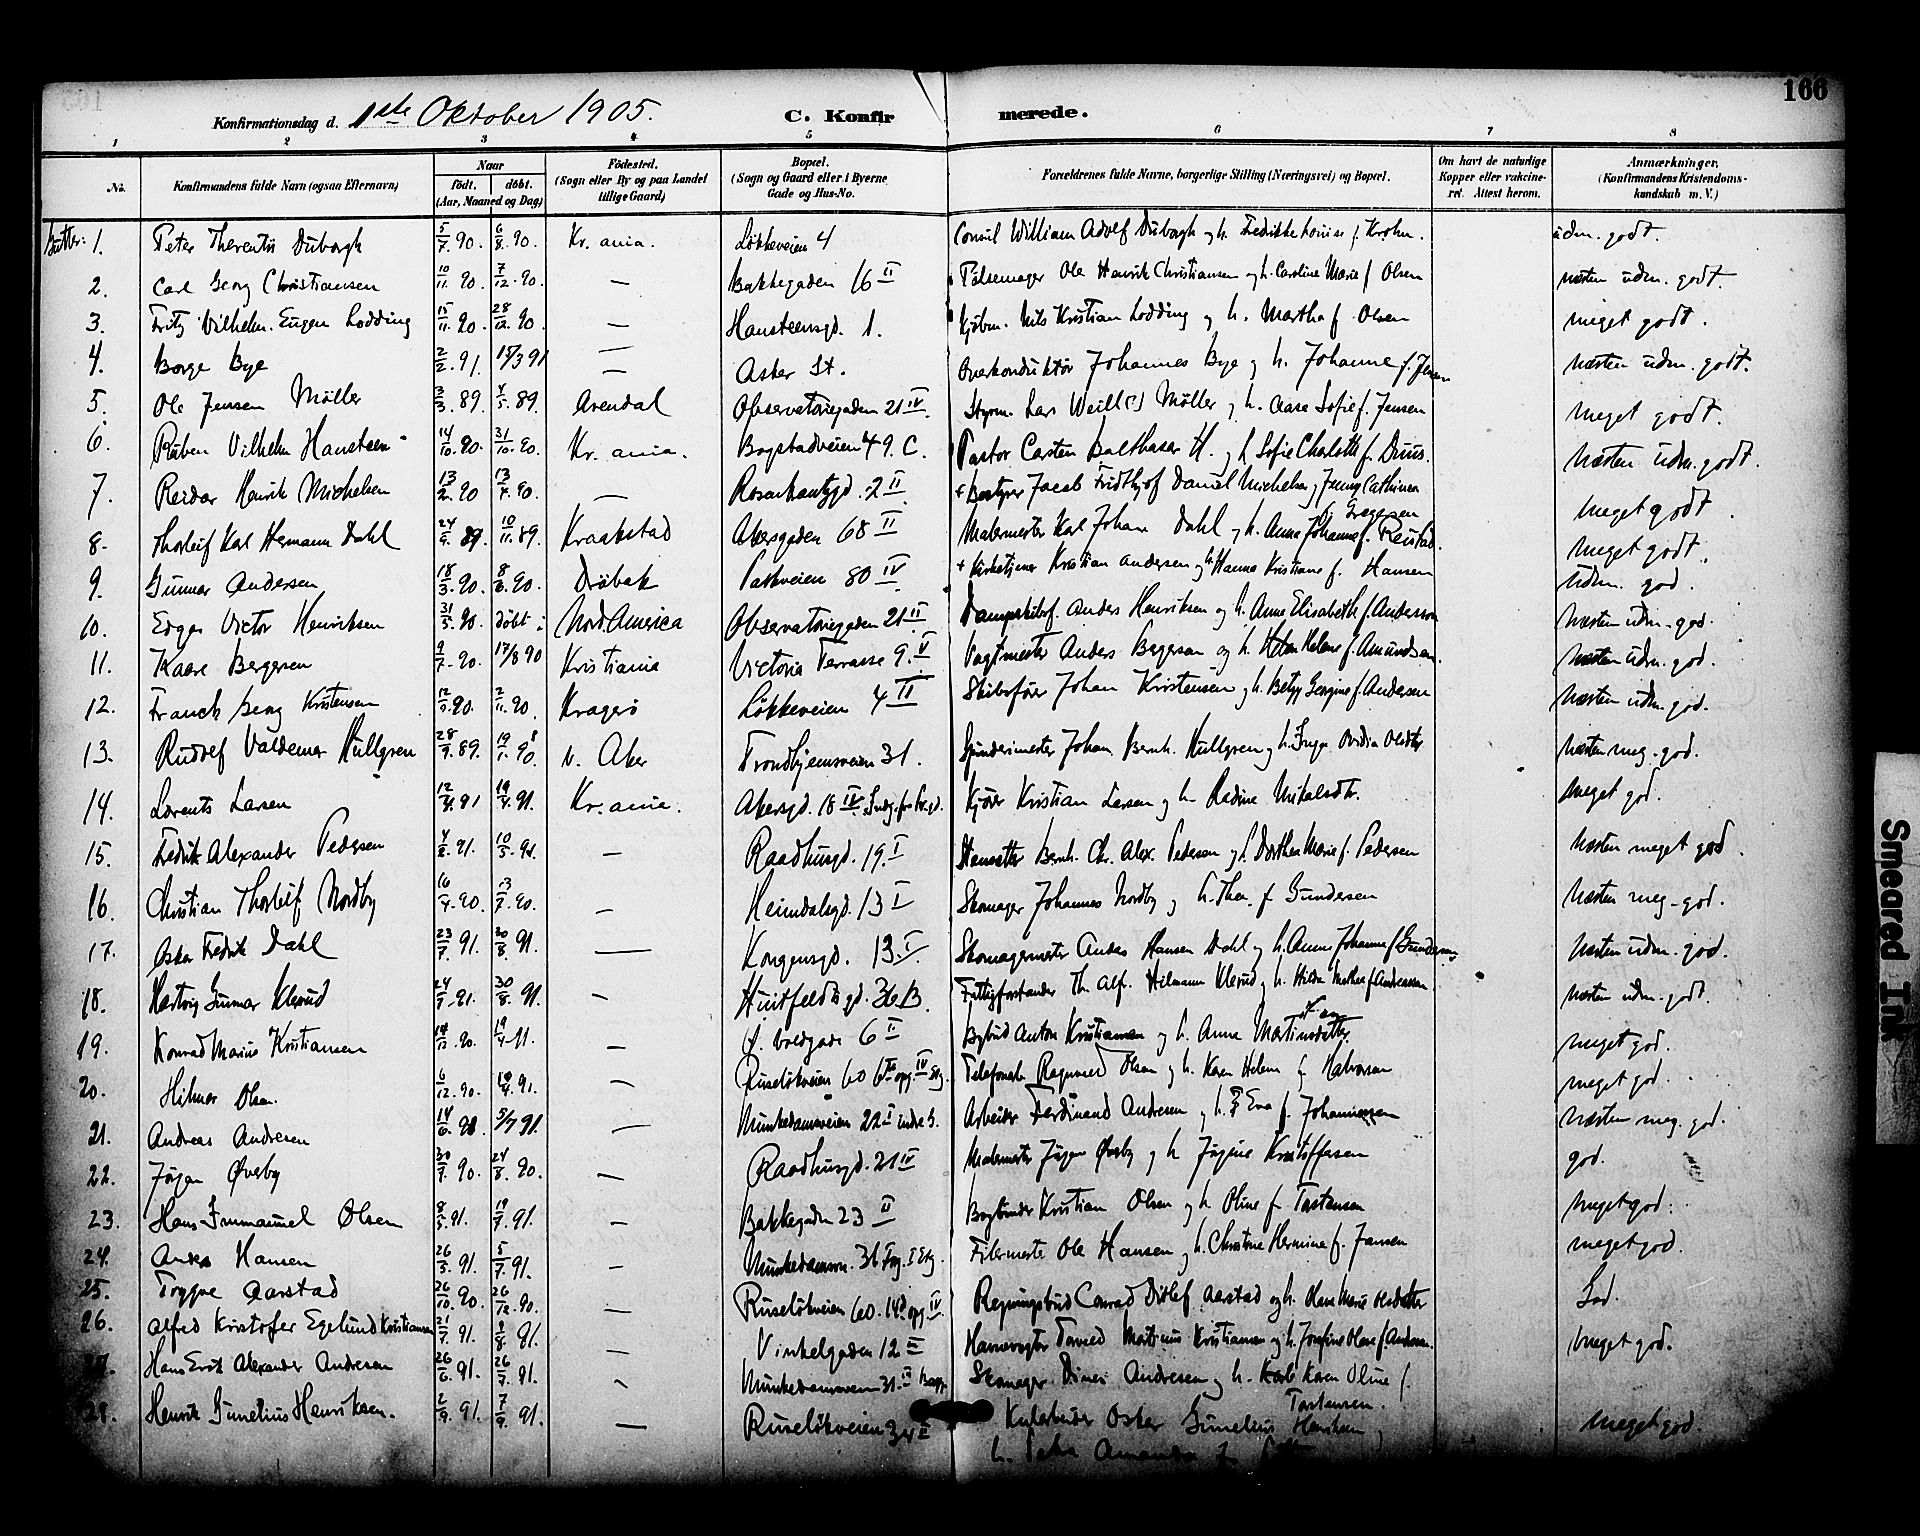 166
Konfirmationsdag d. 1ste Oktober 1905.
C. Konfirmerede.
1 2 3 4 5 6 7 8
No.
Konfirmandens fulde Navn (ogsaa Efternavn)
Naar
født. døbt.
(Aar, Maaned og Dag)
Fødested.
(Sogn eller By og paa Landet
tillige Gaard)
Bopæl.
(Sogn og Gaard eller i Byerne
Gade og Hus-No.
Forældrenes fulde Navne, borgerlige Stilling (Næringsvei) og Bopæl.
Om havt de naturlige
Kopper eller vakcine-
ret. Attest herom.
Anmærkninger,
(Konfirmandens Kristendoms-
kundskab m. V.)
Gutter: 1. Peter Therentis Duborgh 5/7. 90. 6/8. 90. Kr.ania. Løkkeveien 4 Consul William Adolf Duborgh og h. Fredrikke Louise f. Krohn. udm. godt.
2. Carl Georg Christiansen 10/11. 90. 7/12. 90. — Bakkegaden 16 II Pølsemager Ole Henrik Christiansen og h. Caroline Marie f. Olsen næsten udm. godt.
3. Fritz Vilhelm Eugen Lodding 15/11. 90. 28/12. 90. — Hansteensgd. 1. Kjøbm. Nils Kristian Lodding og h. Martha f. Olsen meget godt.
4. Borge Bye 2/2. 91. 15/3 91 — Asker St. Overkonduktør Johannes Bye og h. Johanne f. Jensen næsten udm. godt.
5. Ole Jensen Møller 3/3. 89. 4/5. 89. Arendal Observatoriegaden 21 IV. Styrm. Lars Møller og h. Aase Sofie f. Jensen meget godt.
6. Ruben Vilhelm Hansteen 14/10. 90. 31/10. 90. Kr.ania. Bogstadveien 49. C. Pastor Carsten Balthasar H. og h. Sofie Charlotte f. Duus. Næsten udm. godt.
7. Reidar Henrik Michelsen 13/2. 90 13/4. 90. — Rosenkrantzgd. 2 II + Bestyrer Jacob Fridthjof Daniel Michelsen og Jenny Cathinca
f. Gregersen meget godt.
8. Thorleif Karl Hermann Dahl 24/9. 89. 10/11. 89. Kraakstad Akersgaden 68 II Malermester Karl Johan Dahl og h. Anna Johanne f. meget godt.
9. Gunnar Andersen 18/3. 90. 8/6. 90. Drøbak Parkveien 80 IV + Kirketjener Kristian Andersen og h. Hanna Kristiane f. Hansen Udm. god.
10. Edgar Victor Henriksen 31/5. 90. døbt i Nord. America Observatoriegaden 21 II Anders Henriksen og h. Anne Elisabeth f. Andersson Næsten udm. god.
11. Kaare Bergersen 9/7. 90. 17/8 90 Kristiania Victoria Terrasse 9. V Vagtmester Anders Bergersen og h. Helene f. Amundsen. Næsten udm. god.
12. Franck Georg Kristensen 12/9. 90. 2/11. 90. Kragerø Løkkeveien 4 II Skibsfører Johan Kristensen og h. Betzy Georgine f. Andersen Næsten udm. god.
13. Rudolf Valdemar Hullgren 28/9. 89. 19/1. 90. v. Aker Trondhjemsveien 31. Spinderimester Johan Bernh. Hullgren og h. Inga Ovidia Olsdtr Næsten meg. god.
14. Lorents Larsen 12/3. 91 19/4. 91. Kr.ania. Akersgd. 18 IV. Kjører Kristian Larsen og h. Radine Mikalsdtr. Meget god.
15. Fredrik Alexander Pedersen 4/2. 91. 10/5. 91. — Raadhusgd. 19. I Bernh. Chr. Alex. Pedersen og h. Dorthea Marie f. Pedersen Næsten meget god.
16. Christian Thorleif Nordby 16/4. 90. 13/7. 90. — Heimdalsgd. 13 I Skomager Johannes Nordby og h. Thea f. Gundersen Næsten meg. god.
17. Oskar Fredrik Dahl 23/7. 91. 30/8. 91. — Kongensgd. 13. I Skomagermester Anders Hansen Dahl og h. Anna Johanne f. Gundersen Næsten udm. god.
18. Hartvig Gunnar Klerud 24/7. 91. 30/8. 91. — Huitfeldtsgd. 36 B. Fattigforstander Th. Alf. Hilmann Klerud og h. Hilda Mathea f. Andreassen Næsten udm. godt.
19. Konrad Marius Kristiansen 90. 19/4. 91. — 6 II Bybud Anton Kristiansen og h. Anna Martinsdatter meget god.
20. Hilmar Olsen. 6/12. 90. 19/4. 91. — Ruseløkveien 60 Ragnvald Olsen og h. Karen Helene f. Halvorsen meget god.
21. Andreas Andresen 14/6. 90. 5/7 91. — Munkedamsveien 22 I indre 3. Arbeider Ferdinand Andresen og h. Eva f. Johannessen Næsten meg. god.
22. Jørgen Øvrby 30/7. 90. 24/8. 90. — Raadhusgd. 21 IV Malermester Jørgen Øvrby og h. Jørgine Kristoffersen god.
23. Hans Immanuel Olsen 8/5. 91. 19/7. 91. — Bakkegaden 23 II Bogbinder Kristian Olsen og h. Oline f. Torstensen meget god.
24. Anders Hansen 26/5. 91. 5/7. 91. — Munkedamsv. 31 Ole Hansen og h. Christine Hermine f. Jansen meget god.
25. Trygve Aarstad 26/10. 90. 26/12. 90. Ruseløkveien 60. Regningsbud Conrad Ditlef Aarstad og h. Olava Marie Olsdatter God.
26. Alfred Kristofer Egelund Kristiansen 21/7. 91. 9/8. 91. — Vinkelgaden 12 II Havnevogter Martinius Kristiansen og h. Josefine Olava f. Andersen. Meget god.
27. Hans Erik Alexander Andresen 26/6. 91. 26/7. 91. Munkedamsveien 31. II Skomager Andresen og h. Karen Oline f.
Torstensen.
28. Henrik Gunelius Henriksen. 2/9. 91. — Ruseløkveien 34 II Oskar Gunelius Henriksen og meget god.
h. Petra Amanda f.
Smeared Ink